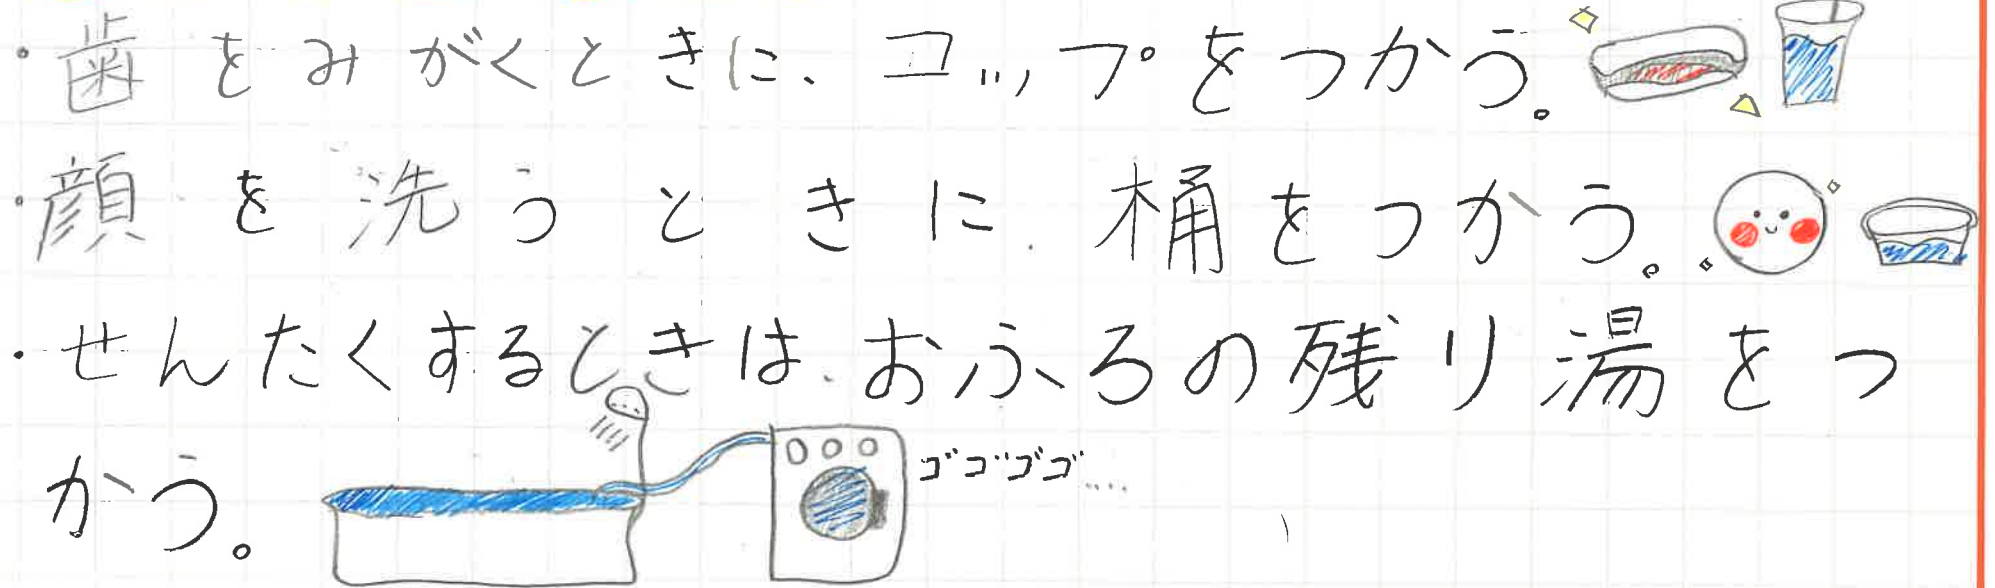 ・歯をみがくときに、コップをつかう。
・顔を洗うときに、桶をつかう。
・せんたくするときは、おふろの残り湯をつ
かう。
ゴゴゴゴ……